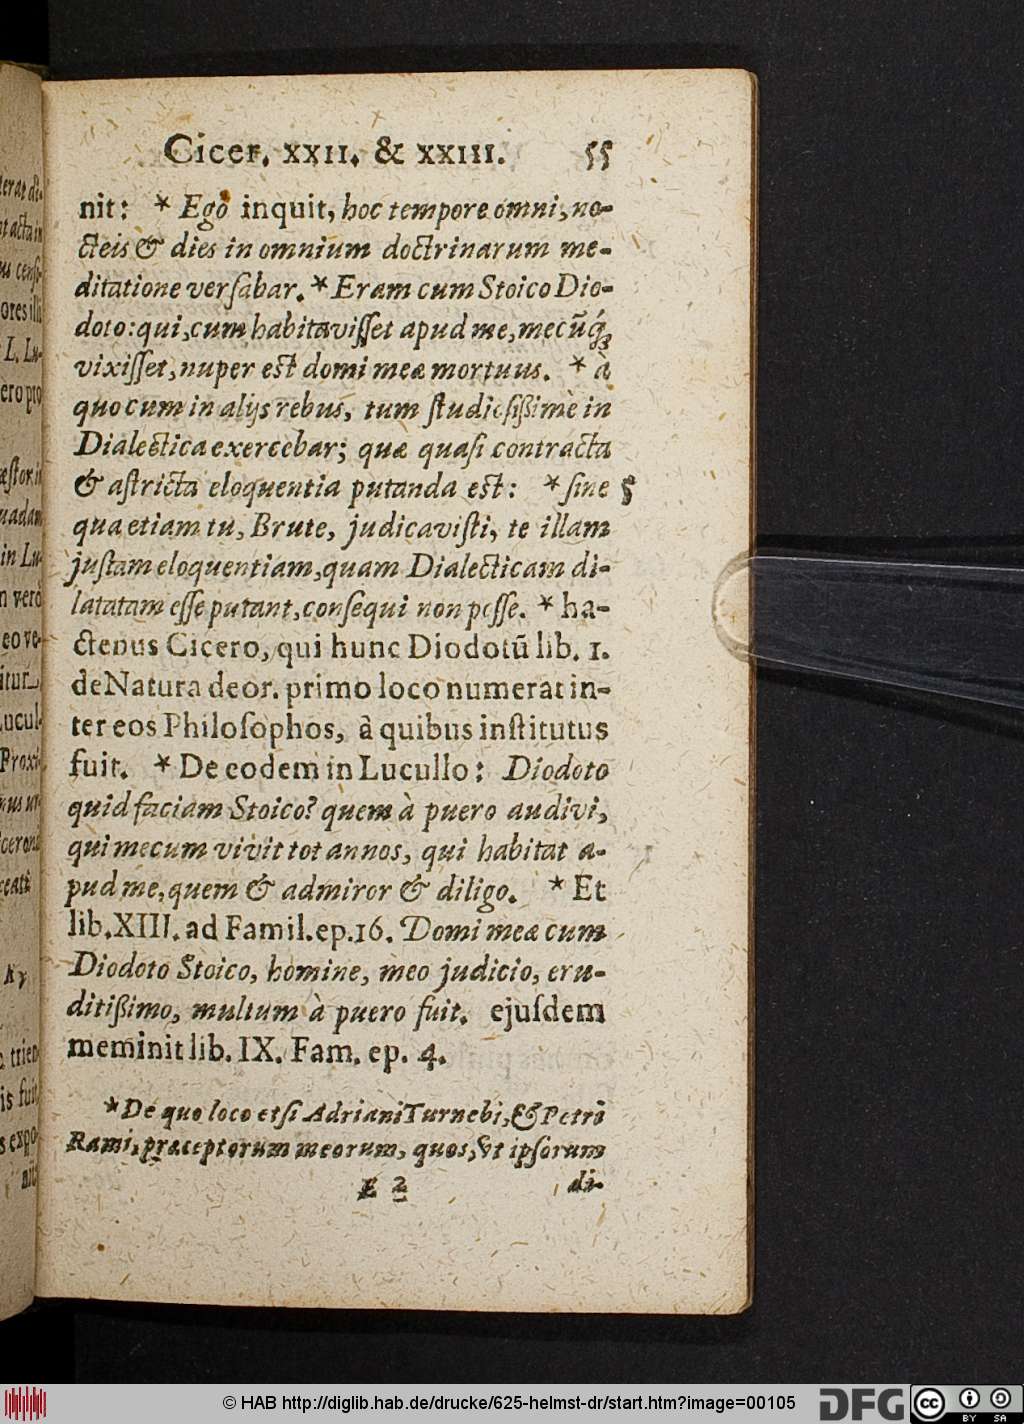 Cicer. XXII. & XXIII. 55
nit: * Ego inquit, hoc tempore omni, no-
cteis & dies in omnium doctrinarum me-
ditatione verſabar. * Eram cum Stoico Dio-
doto: qui, cum habitaviſſet apud me, mecūq́;
vixiſſet, nuper eſt domi meæ mortuus. * à
quo cum in alijs rebus, tum ſtudioſißimè in
Dialectica exercebar; quæ quaſi contracta
& aſtricta eloquentia putanda eſt: * ſine 5
qua etiam tu, Brute, judicaviſti, te illam
juſtam eloquentiam, quam Dialecticam di-
latatam eſſe putant, conſequi non poſſe. * ha-
ctenus Cicero, qui hunc Diodotū lib. 1.
de Natura deor. primo loco numerat in-
ter eos Philoſophos, à quibus inſtitutus
fuit. * De eodem in Lucullo: Diodoto
quid faciam Stoico? quem à puero audivi,
qui mecum vivit tot annos, qui habitat a-
pud me, quem & admiror & diligo. * Et
lib. XIII. ad Famil. ep. 16. Domi meæ cum
Diodoto Stoico, homine, meo judicio, eru-
ditißimo, multum à puero fuit. ejuſdem
meminit lib. IX. Fam. ep. 4.
* De quo loco etſi Adriani Turnebi, & Petri
Rami, præceptorum meorum, quos, vt ipſorum
E 2 di-
© HAB http://diglib.hab.de/drucke/625-helmst-dr/start.htm?image=00105 DFG cc BY SA